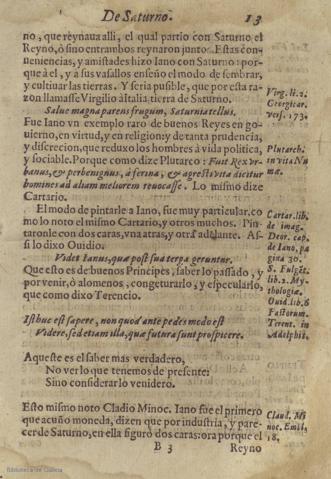 De Saturno. 13
no, que reynaua alli, el qual partio con Saturno el
Reyno, ò sino entrambos reynaron junto. Estas con-
ueniencias, y amistades hizo Iano con Saturno: por-
que à el, y a sus vasallos enseño el modo de sembrar,
y cultiuar las tierras. Y seria pusible, que por esta ra-
zon llamasse Virgilio à Italia, tierra de Saturno.
Virg. li. 2.
Georgicar.
vers. 173.
Salue magna parens frugum, Saturnia tellui.
Fue Iano vn exemplo raro de buenos Reyes en go-
uierno, en virtud, y en religion: y de tanta prudencia,
y discrecion, que reduxo los hombres à vida politica,
y sociable. Porque como dize Plutarco: Fuit Rex vr-
banus, & perbenignus, à ferina, & agresti vita dicitur
homines ad aliam meliorem reuocasse. Lo mismo dize
Cartario.
Plutarch.
in vita Nu
ma.
El modo de pintarle a Iano, fue muy particular, co
mo lo noto el mismo Cartario, y otros muchos. Pin-
taronle con dos caras, vna atras, y otra adelante. As-
si lo dixo Ouidio.
Vidit Ianus, quæ post sua terga geruntur.
Que esto es de buenos Principes, saber lo passado, y
por venir, ò alomenos, congeturarlo, y especularlo,
que como dixo Terencio.
Cartar. lib.
de imag.
Deor. cap.
de Iano, pa
gina 30.
S. Fulget.
lib. 2. My-
thologiæ.
Ouid. lib. 6
Fastorum.
Terent. in
Adelphis.
Istbuc est sapere, non quod ante pedes modo est
Videre, sed etiam illa, quæ futura sunt prospicere.
Aqueste es el saber mas verdadero,
No ver lo que tenemos de presente:
Sino considerarlo venidero.
Esto mismo noto Cladio Minoc. Iano fue el primero
que acuño moneda, dizen que por industria, y pare-
cer de Saturno, en ella figurò dos caras: ora porque el
Claud. Mi
noc. Emil.
18.
B 3 Reyno
Biblioteca de Galicia